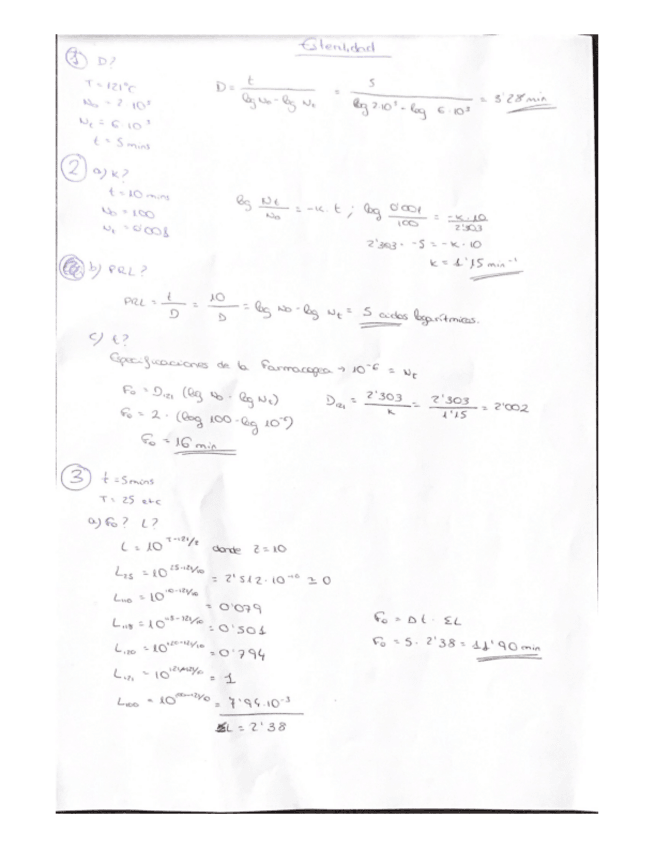 Esterilidad
1 D?
T = 121°C
N₀ = 2·10⁵
Nt = 6·10³
t = 5 mins
D = t / (log N₀ - log Nt) = 5 / (log 2·10⁵ - log 6·10³) = 3'28 min
2 a) k?
t = 10 mins
N₀ = 100
Nt = 0'001
log Nt/N₀ = -k·t ; log 0'001/100 = -k·10/2'303
2'303 · -5 = -k·10
k = 1'15 min⁻¹
b) PRL?
PRL = t/D = 10/D = log N₀ - log Nt = 5 ciclos logarítmicos.
c) t?
Especificaciones de la Farmacopea → 10⁻⁶ = Nt
F₀ = D₁₂₁ (log N₀ - log Nt)
D₁₂₁ = 2'303/k = 2'303/1'15 = 2'002
F₀ = 2 · (log 100 - log 10⁻⁶)
F₀ = 16 min
3 t = 5 mins
T = 25 etc
a) F₀? L?
L = 10^T-121/z donde z = 10
L₂₅ = 10^25-121/10 = 2'512·10⁻¹⁰ ≅ 0
L₁₁₀ = 10^110-121/10 = 0'079
L₁₁₈ = 10^118-121/10 = 0'501
L₁₂₀ = 10^120-121/10 = 0'794
L₁₂₁ = 10^121-121/10 = 1
L₁₀₀ = 10^100-121/10 = 7'94·10⁻³
ΣL = 2'38
F₀ = Δt · ΣL
F₀ = 5 · 2'38 = 11'90 min